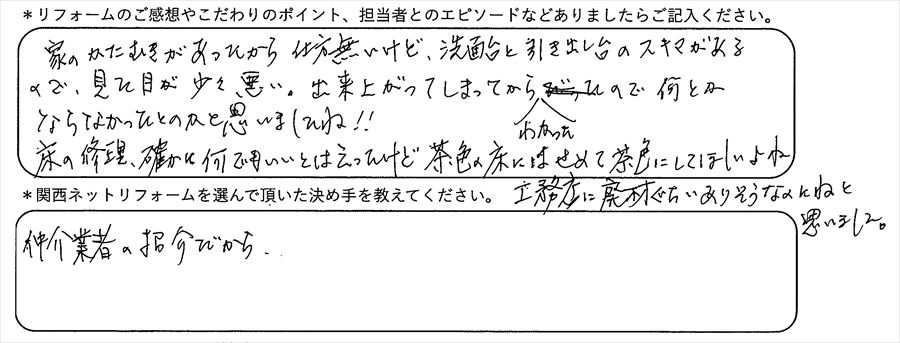 *リフォームのご感想やこだわりのポイント、担当者とのエピソードなどありましたらご記入ください。
家のかたむきがあったから仕方無いけど、洗面台と引き出し台のスキマがある
ので、見た目が少々悪い。出来上がってしまってからわかったので何とか
ならなかったのかと思いましたね!!
床の修理、確かに何でもいいとは言ったけど茶色の床にはせめて茶色にしてほしいよね
工務店に廃材ぐらいありそうなのにねと
思いました。
*関西ネットリフォームを選んで頂いた決め手を教えてください。
仲介業者の紹介だから..